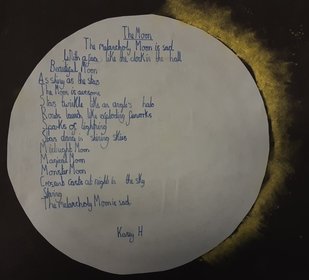 The Moon
The melancholy Moon is sad
With a face like the clock in the hall
Beautiful Moon
As shiny as the stars
The Moon is awesome
Stars twinkle like an angle's halo
Rockets launch like exploding fireworks
Sparks of lightning
Stars dance in shining skies
Midnight Moon
Magical Moon
Monster Moon
Cresent casts at night in the sky
Shining
The Melancholy Moon is sad
H